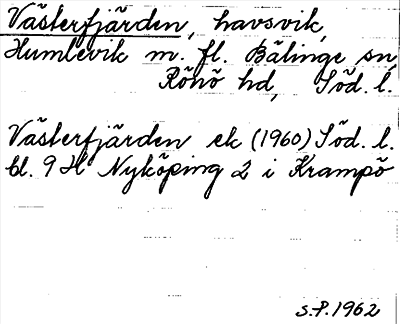 Västerfjärden, havsvik,
Humlevik m. fl. Bälinge sn,
Rönö hd, Söd. l.
Västerfjärden ek (1960) Söd. l.
bl. 9 H Nyköping 2 i Krampö
S.P. 1962